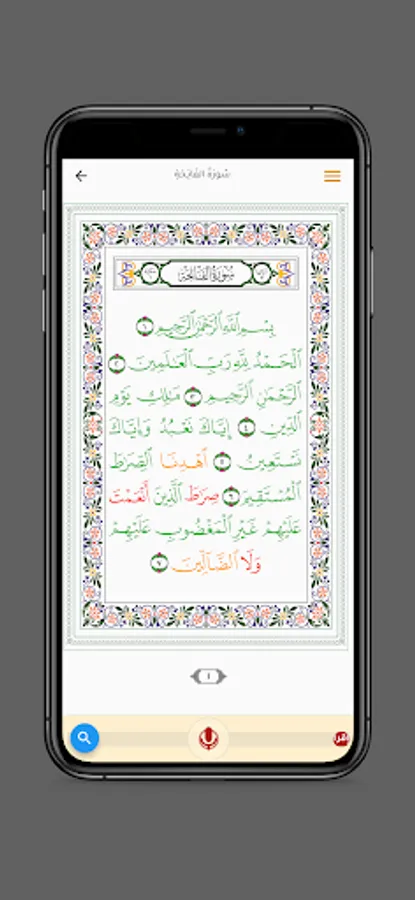 سُورَةُ الفَاتِحَةِ
سُورَةُ الْفَاتِحَةِ
بِسْمِ ٱللَّهِ ٱلرَّحْمَٰنِ ٱلرَّحِيمِ ١
ٱلْحَمْدُ لِلَّهِ رَبِّ ٱلْعَٰلَمِينَ ٢
ٱلرَّحْمَٰنِ ٱلرَّحِيمِ ٣ مَٰلِكِ يَوْمِ
ٱلدِّينِ ٤ إِيَّاكَ نَعْبُدُ وَإِيَّاكَ
نَسْتَعِينُ ٥ ٱهْدِنَا ٱلصِّرَٰطَ
ٱلْمُسْتَقِيمَ ٦ صِرَٰطَ ٱلَّذِينَ أَنْعَمْتَ
عَلَيْهِمْ غَيْرِ ٱلْمَغْضُوبِ عَلَيْهِمْ
وَلَا ٱلضَّآلِّينَ ٧
١